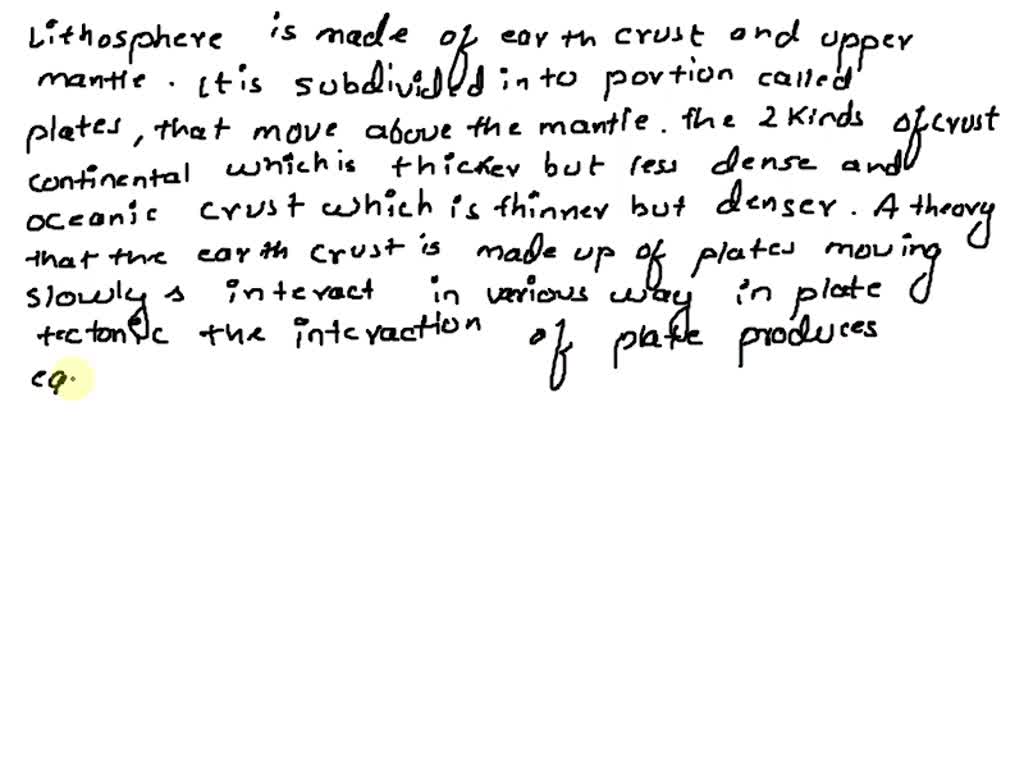 Lithosphere is made of earth crust and upper
mantle. It is subdivided into portion called
plates, that move above the mantle. The 2 Kinds of crust
continental which is thicker but less dense and
oceanic crust which is thinner but denser. A theory
that the earth crust is made up of plates moving
slowly s interact in various way in plate
tectonic the interaction of plate produces
ea.